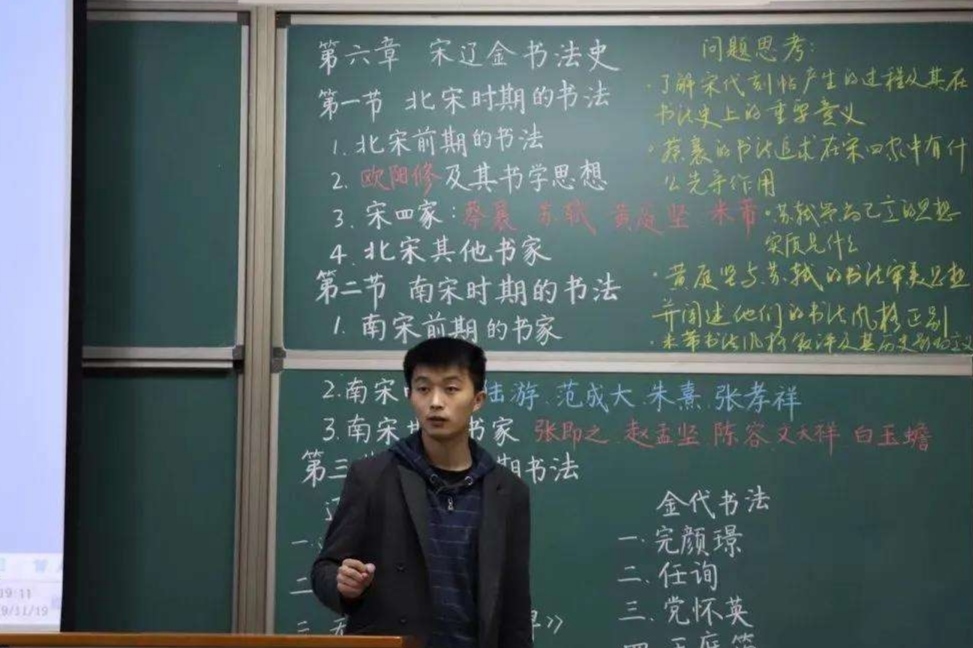 第六章 宋辽金书法史
第一节 北宋时期的书法
1.北宋前期的书法
2.欧阳修及其书学思想
3.宋四家:蔡襄 苏轼 黄庭坚 米芾
4.北宋其他书家
第二节 南宋时期的书法
1.南宋前期的书家
2.南宋 陆游.范成大.朱熹.张孝祥
3.南宋 书家 张即之 赵孟坚 陈容 文天祥 白玉蟾
第三 期书法
问题思考:
·了解宋代刻帖产生的过程及其在
书法史上的重要意义
·蔡襄的书法追求在宋四家中有什
么先导作用
·苏轼 的思想
实质是什么
·黄庭坚与苏轼的书法审美思想
并阐述他们的书法风格区别
·米芾书法风格 及其历史
金代书法
一.完颜璟
二.任询
三.党怀英
四.王庭筠
19:11
9/11/19